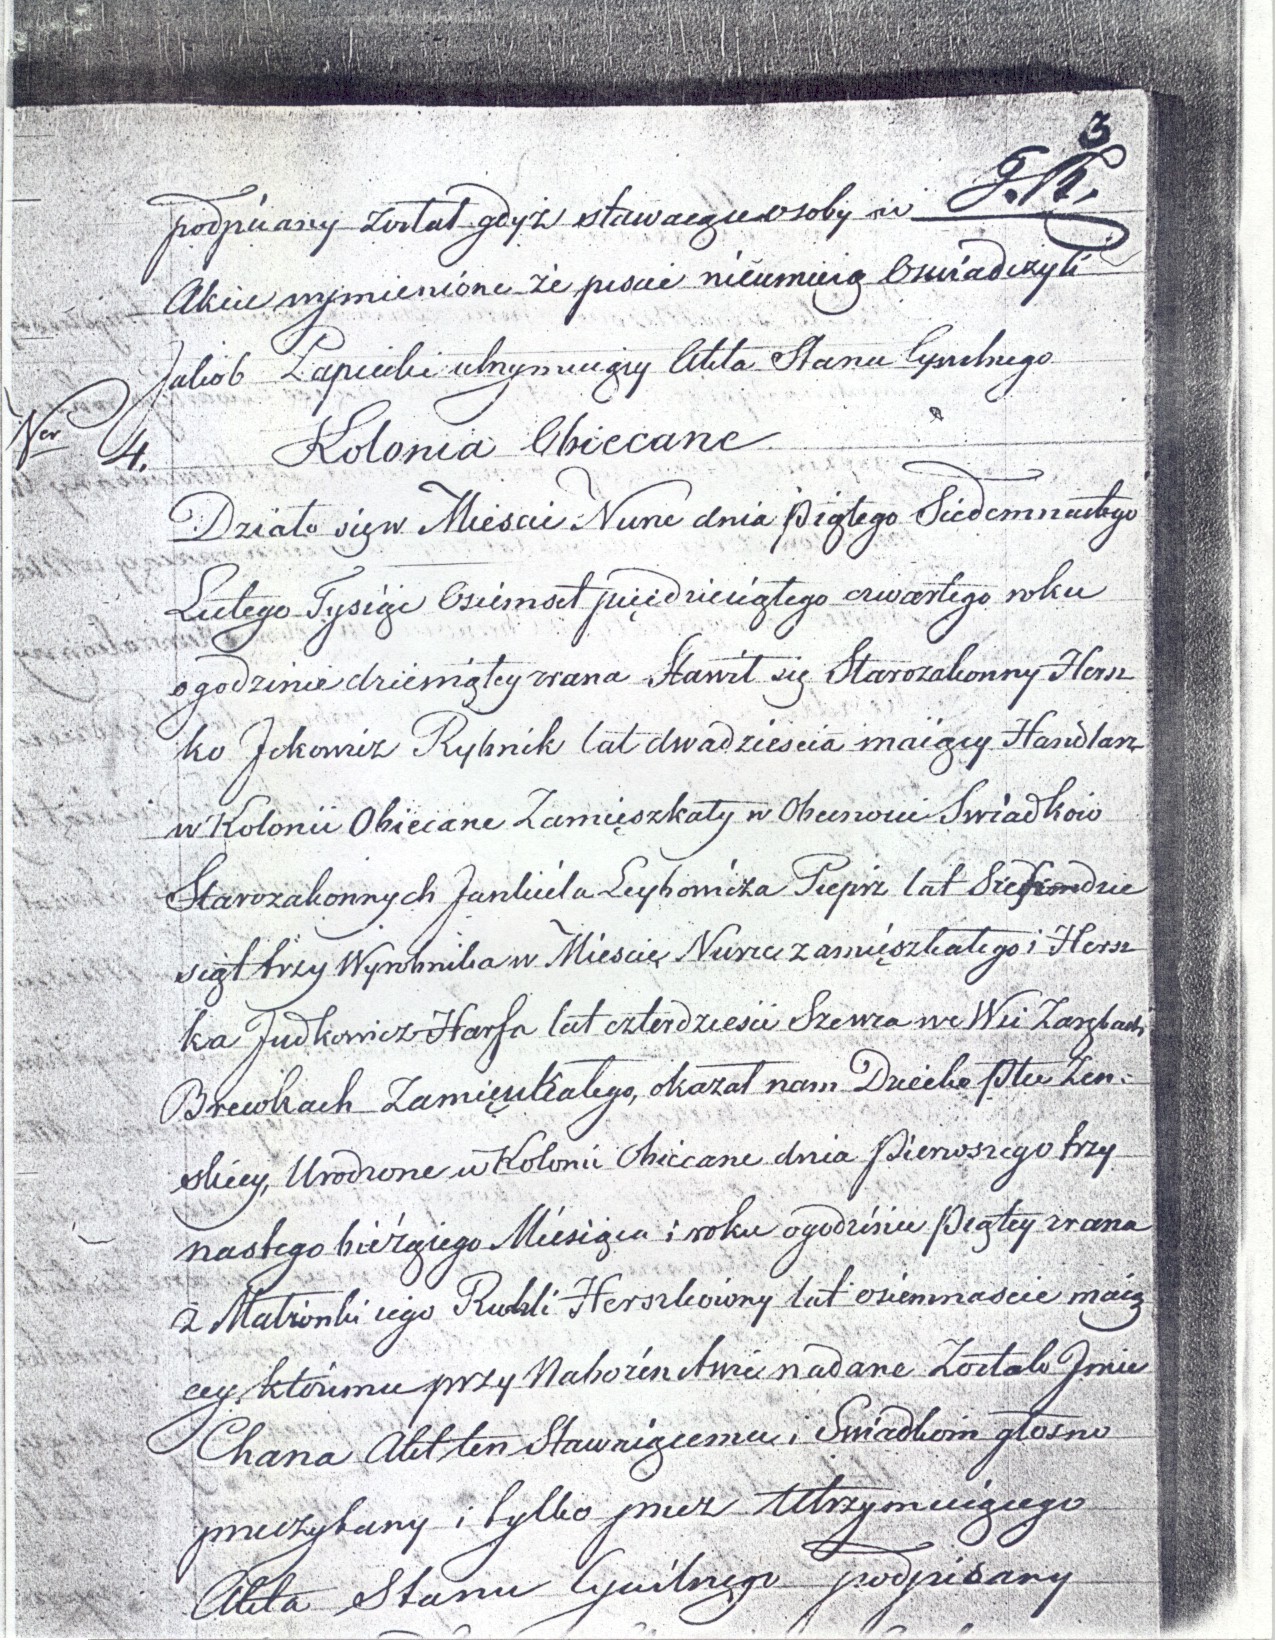 3
podpisany został gdyż stawaiące osoby w
Akcie wymienione że pisać nieumieią Oswiadczyli
Jakób Łapiecki utrzymuiący Akta Stanu Cywilnego
Ner 4. Kolonia Obiecane
Działo się w Miescie Nurze dnia Piątego Siedemnastego
Lutego Tysiąc Osiemset pięćdziesiątego czwartego roku
o godzinie dziewiątey zrana Stawił się Starozakonny Hersz
ko Jckowicz Rybnik lat dwadzieścia maiący Handlarz
w Kolonii Obiecane Zamięszkały w Obecności Swiadków
Starozakonnych Jankiela Leybowicza Pieprz lat Siedemdzie
siąt trzy Wyrobnika w Miescie Nurze zamięszkałego i Hersz
ka Judkowicz Harfa lat czterdzieści Szewca we Wsi Zarębach
Brewkach Zamięszkałego, okazał nam Dziecko Płci Żeń-
skiey, Urodzone w Kolonii Obiecane dnia Pierwszego trzy
nastego bieżącego Miesiąca i roku o godzinie Piątey zrana
z Małżonki iego Ruchli Herszkowny lat osiemnascie maią
cey, któremu przy Nabożeństwie nadane Zostało Jmie
Chana Akt ten Stawaiącemu i Swiadkom głosno
przeczytany i tylko przez Utrzymuiącego
Akta Stanu Cywilnego podpisany